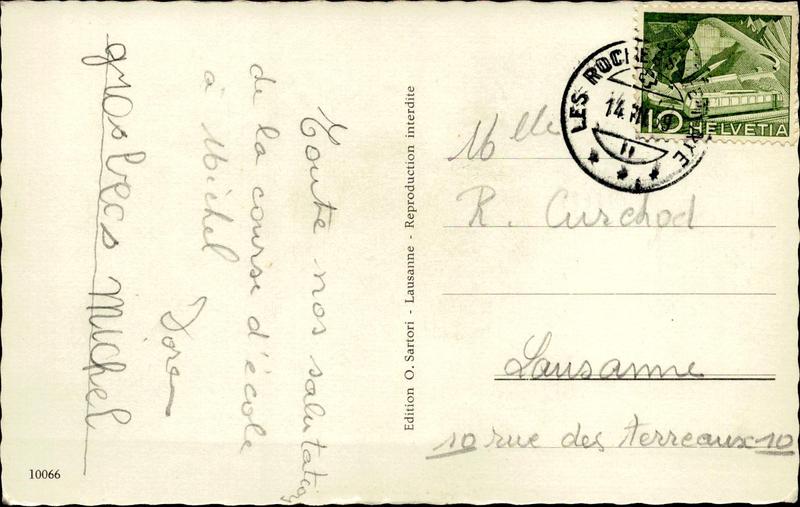 Toute nos salutations
de la course d'école
à Michel
gros becs Michel
10066
Edition O. Sartori - Lausanne - Reproduction interdite
LES ROCHES
14
10 HELVETIA
Mlle
R. Curchod
Lausanne
10 rue des terreaux 10